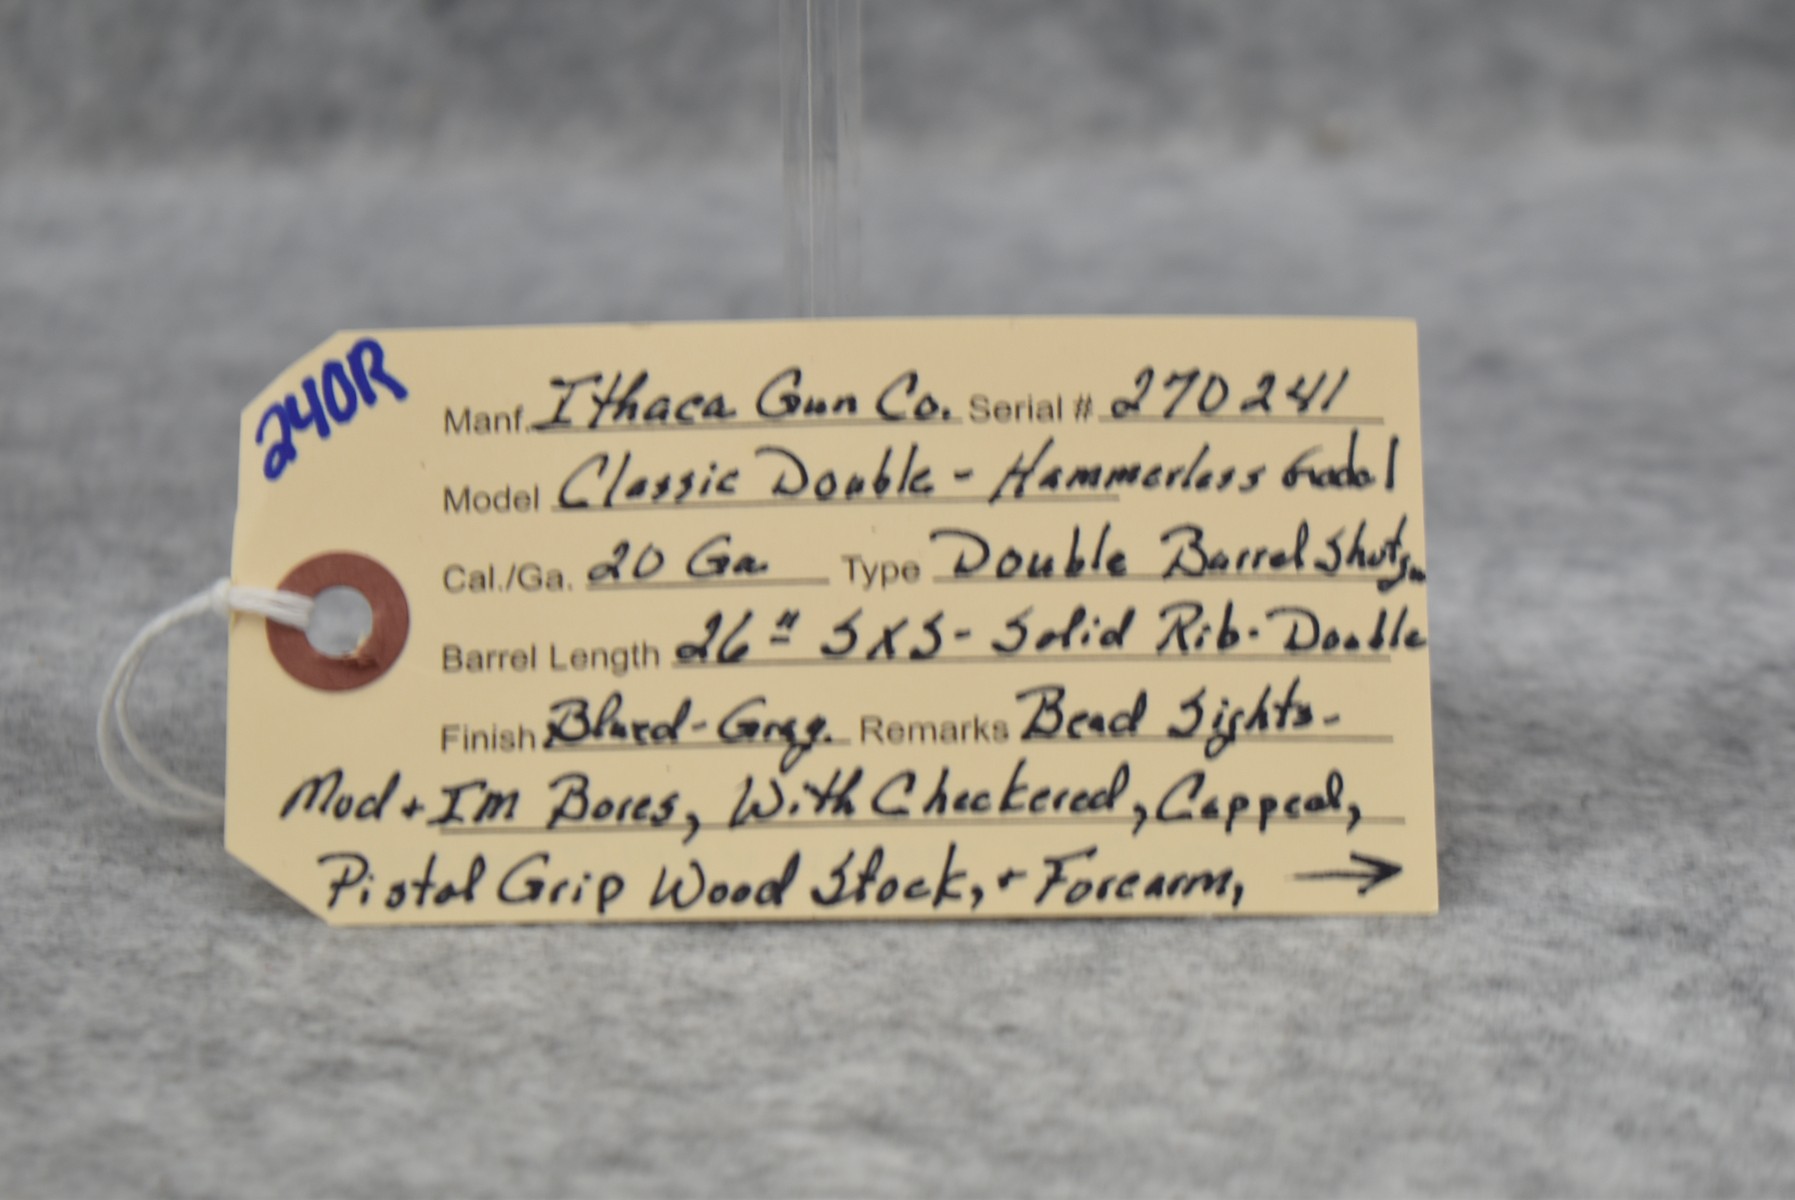 240R
Manf. Ithaca Gun Co. Serial # 270241
Model Classic Double - Hammerless Grade 1
Cal./Ga. 20 Ga. Type Double Barrel Shotgn
Barrel Length 26" SXS - Solid Rib - Double
Finish Blued-Gray. Remarks Bead Sights -
Mod + Im Bores, With Checkered, Capped,
Pistol Grip Wood Stock, + Forearm, →